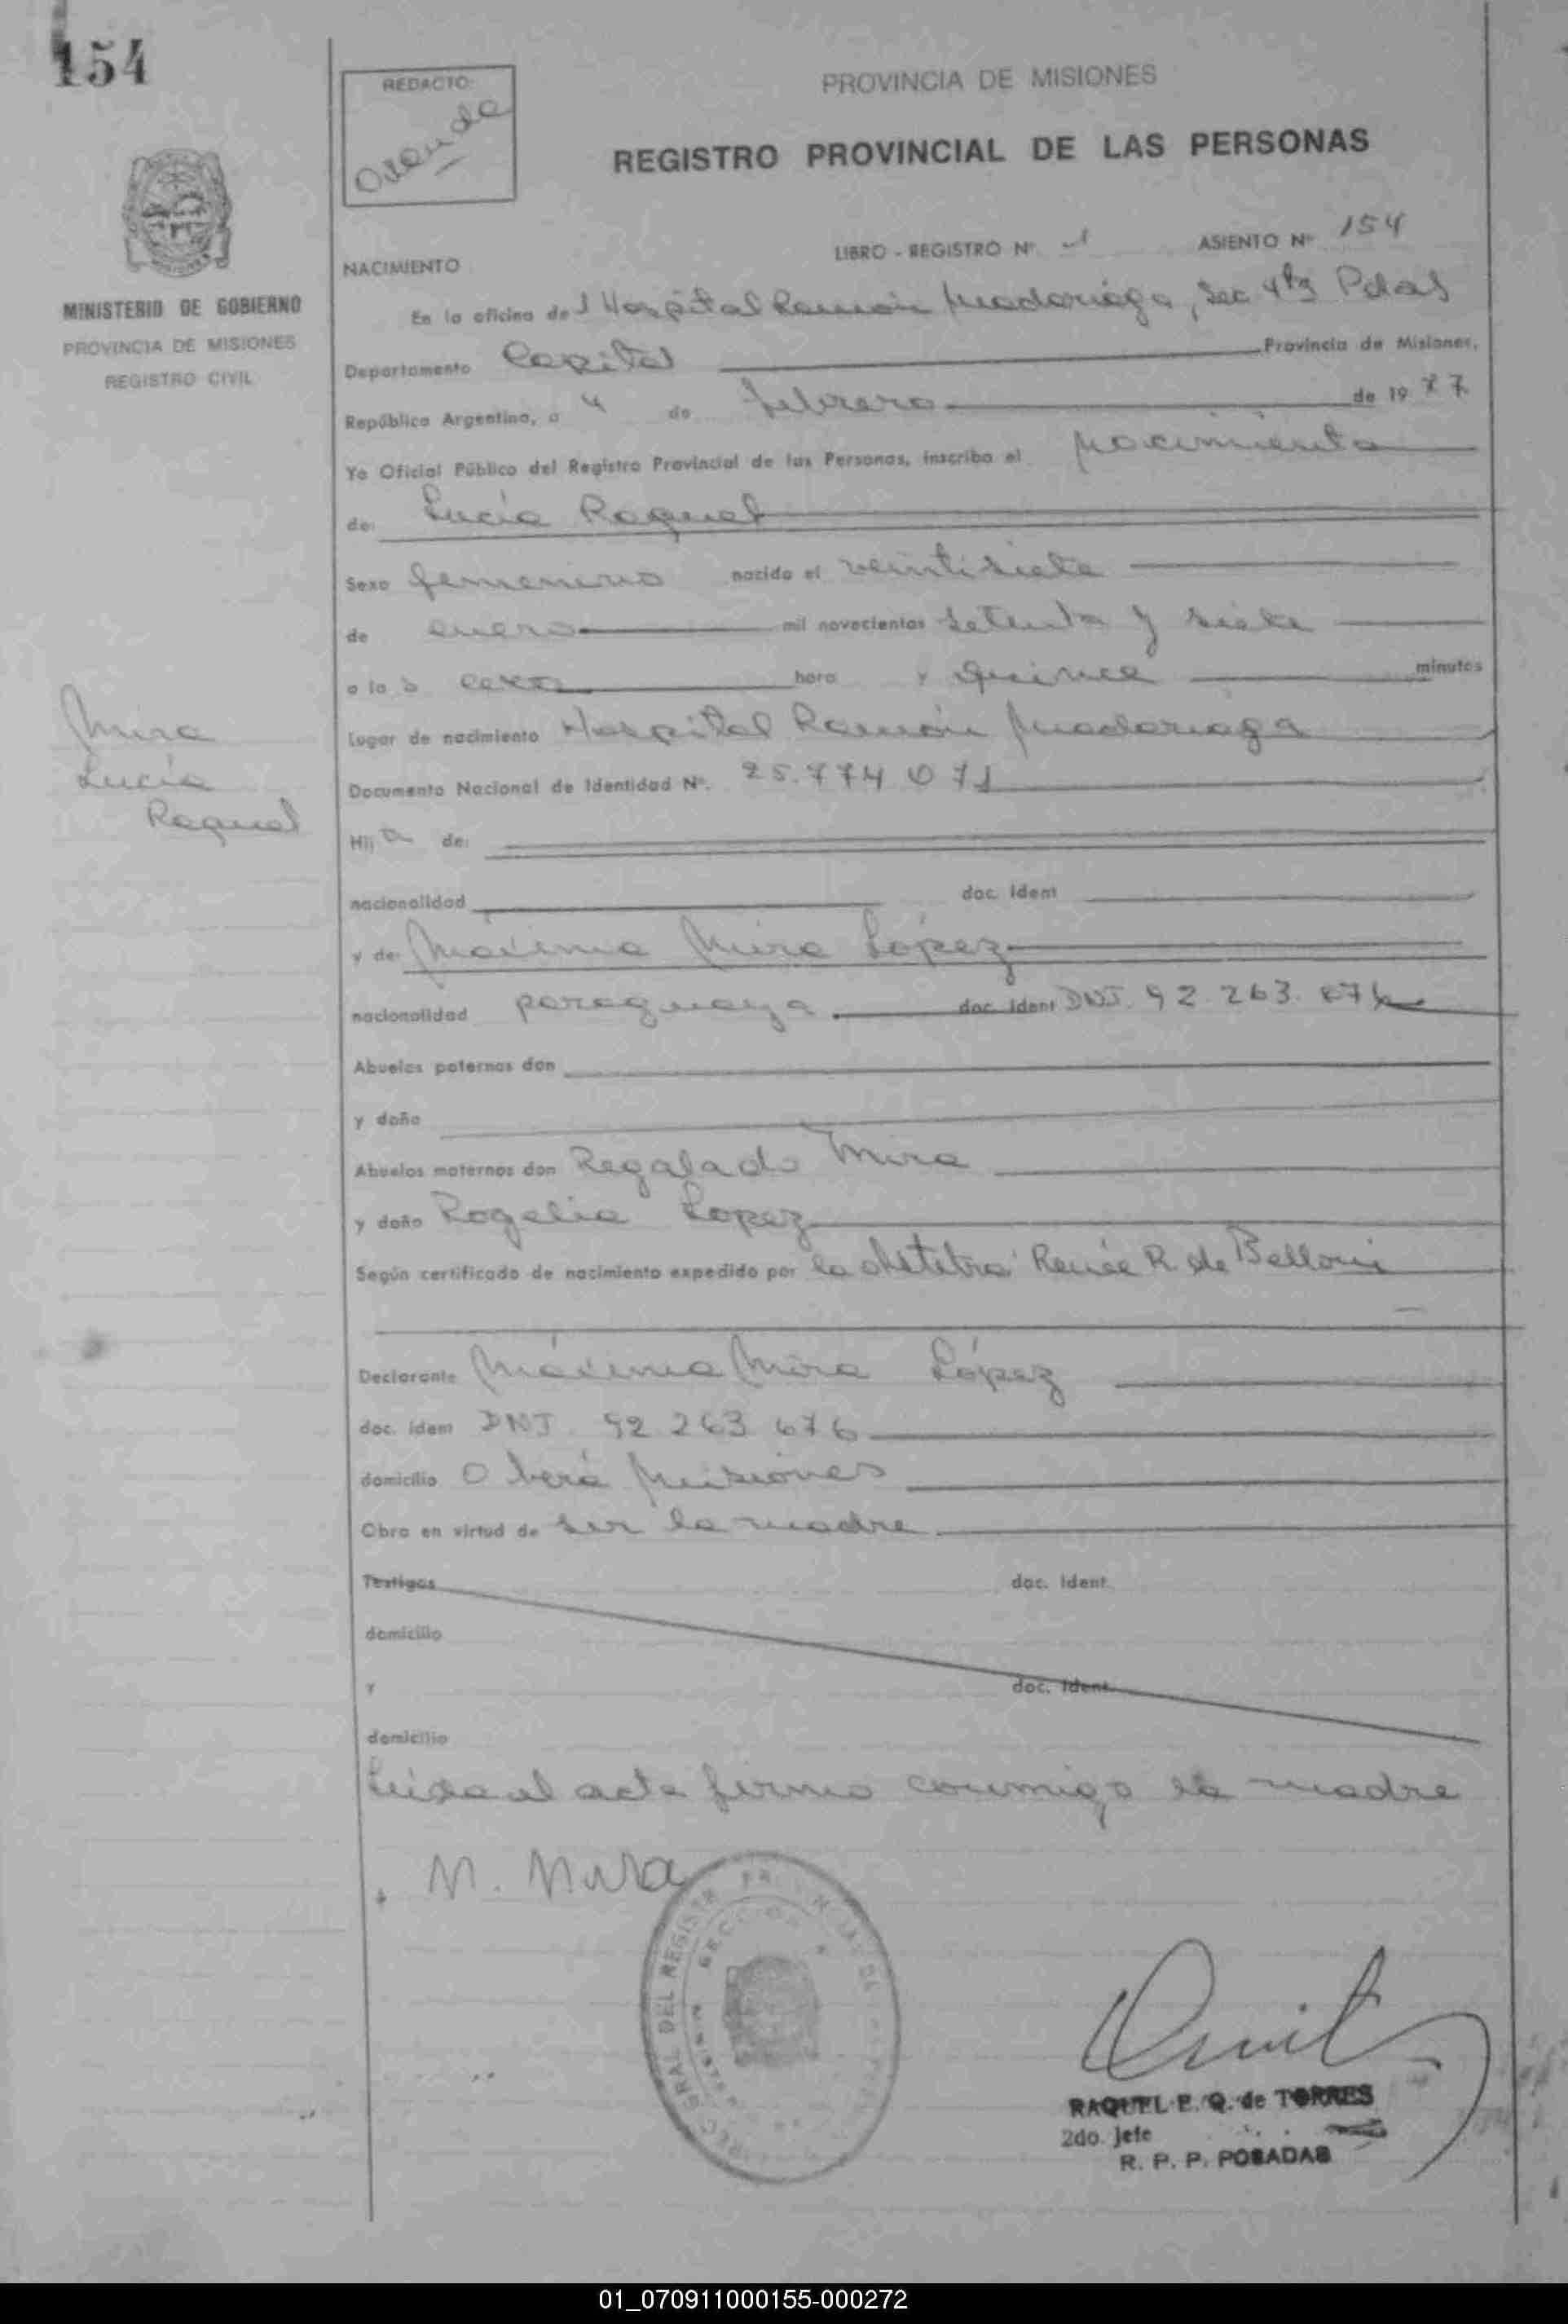 154
REDACTO:
PROVINCIA DE MISIONES
REGISTRO PROVINCIAL DE LAS PERSONAS
MINISTERIO DE GOBIERNO
PROVINCIA DE MISIONES
REGISTRO CIVIL
LIBRO - REGISTRO Nº 1 ASIENTO Nº 154
NACIMIENTO
En la oficina del Hospital Ramón Madariaga, Sec 4ta Pdas
Departamento Capital Provincia de Misiones,
República Argentina, a 4 de febrero de 1977
Yo Oficial Público del Registro Provincial de las Personas, inscribo el nacimiento
de: Lucía Raquel
Sexo femenino nacido el veintisiete
de enero mil novecientos setenta y siete
a las cero hora y quince minutos
Mira
Lucía
Raquel
Lugar de nacimiento Hospital Ramón Madariaga
Documento Nacional de Identidad Nº. 25.774 071
Hija de:
nacionalidad doc. Ident
y de: Máxima Mira López
nacionalidad paraguaya doc. Ident DNI. 92.263.676
Abuelos paternos don
y doña
Abuelos maternos don Regalado Mira
y doña Rogelia Lopez
Según certificado de nacimiento expedido por la obstetra Renée R. de Belloni
Declarante Máxima Mira López
doc. idem DNI. 92 263 676
domicilio Oberá Misiones
Obra en virtud de ser la madre
Testigos doc. Ident.
domicilio
y doc. Ident.
domicilio
Leída el acta firma conmigo la madre
M. Mira
RAQUEL E. Q. de TORRES
2do. Jefe
R. P. P. POSADAS
01_070911000155-000272